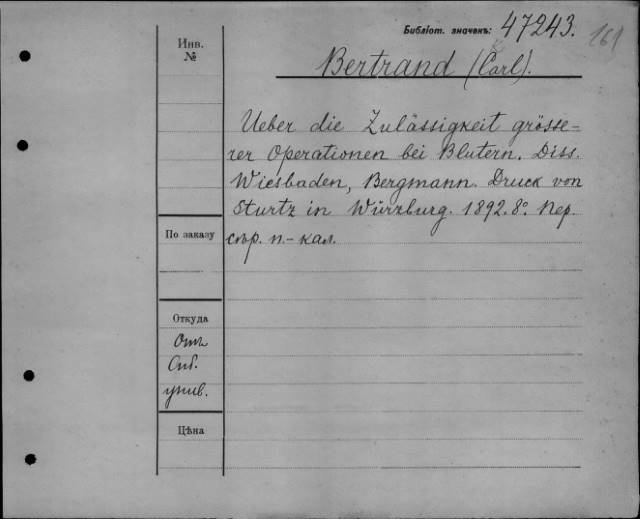 Библіот. значекъ: 47243. 161
Инв. №
Bertrand (Carl).
Ueber die Zulässigkeit grösse-
rer Operationen bei Blutern. Diss.
Wiesbaden, Bergmann. Druck von
Sturtz in Würzburg. 1892. 8º. Пер.
По заказу
стр. п.-кал.
Откуда
Отъ
Сиб.
унив.
Цѣна